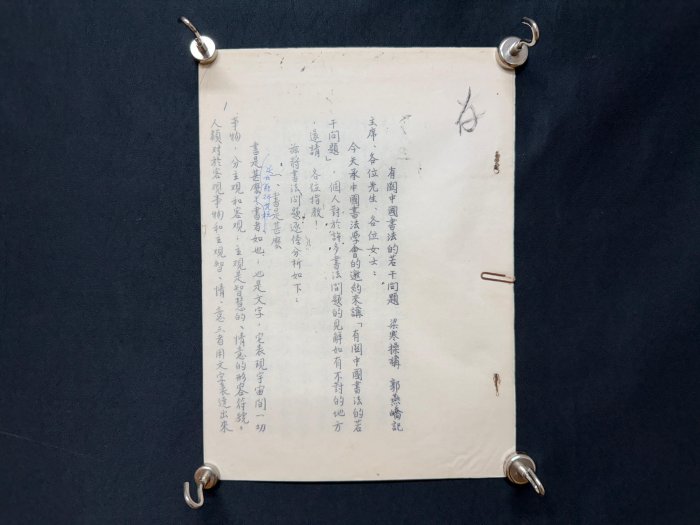 存
有關中國書法的若干問題 梁寒操講 郭燕嶠記
主席、各位先生、各位女士：
今天承中國書法學會的邀約來講「有關中國書法的若
干問題」，個人對於許多書法問題的見解如有不對的地方
，還請各位指教！
茲將書法問題逐條分析如下：
一、書是甚麼
書是甚麼？書者如也，也是文字，它表現宇宙間一切
事物，分主觀和客觀，主觀是智慧的、情意的形容符號。
人類对於客观事物和主观智、情、意三者用文字表達出來
1